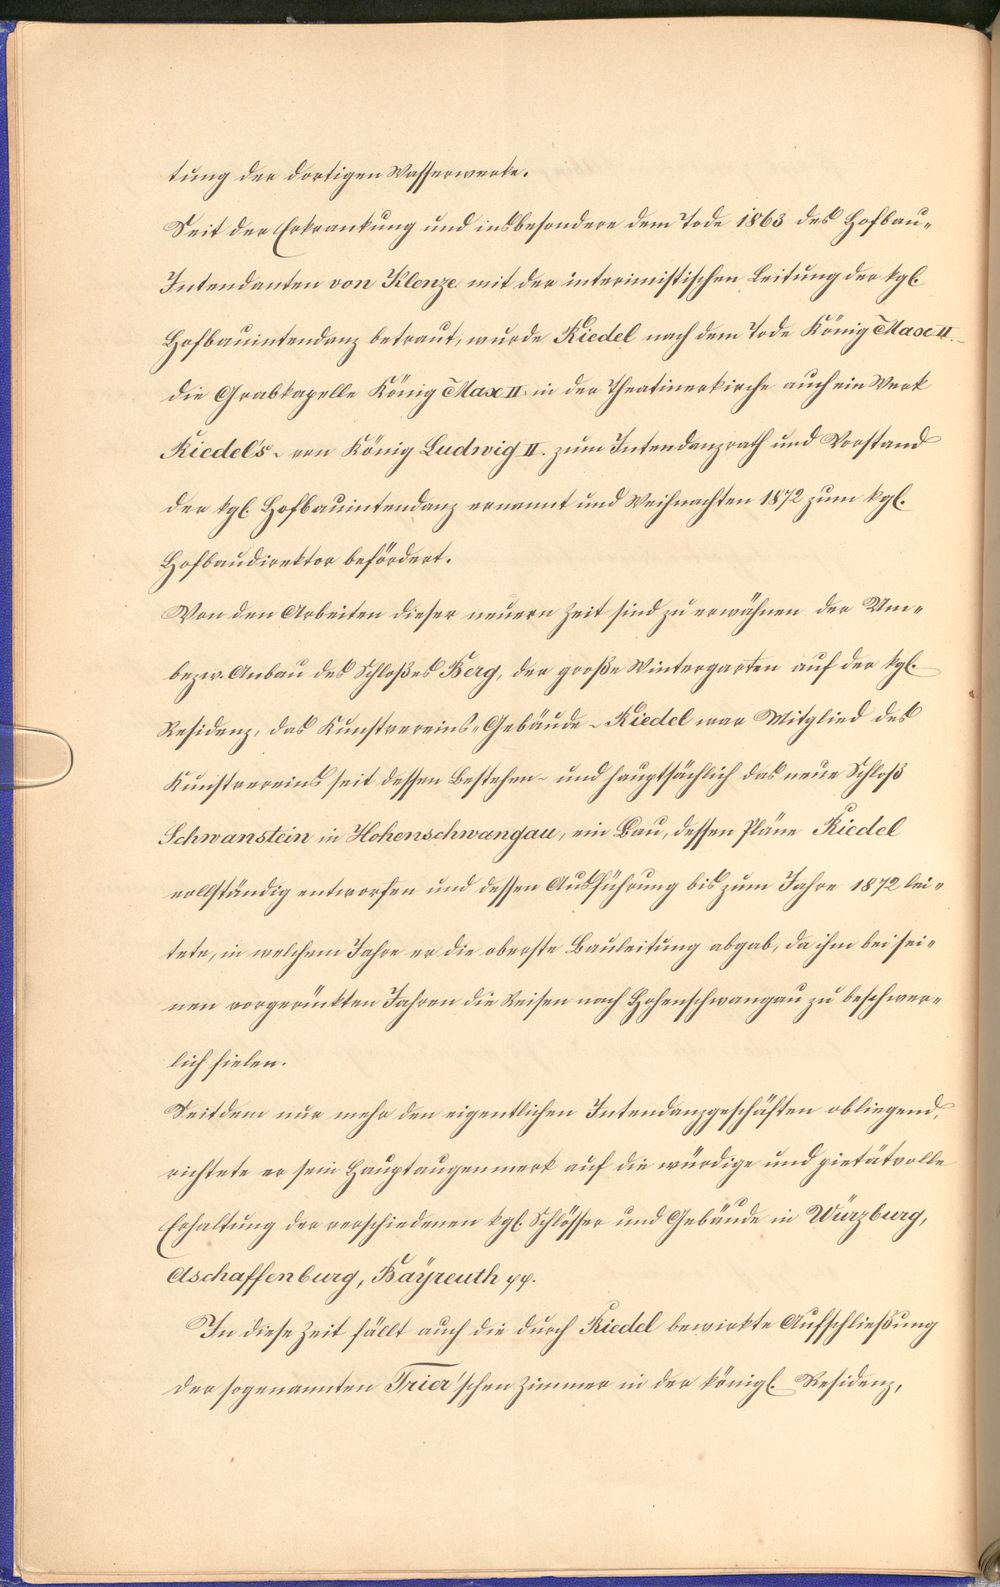 tung der dortigen Wasserwerke.
Seit der Erkrankung und insbesondere dem Tode 1863 des Hofbau-
Intendanten von Klenze mit der interimistischen Leitung der kgl.
Hofbauintendanz betraut, wurde Riedel nach dem Tode König Max II. -
die Grabkapelle König Max II. in der Theatinerkirche auch ein Werk
Riedel's - von König Ludwig II. zum Intendanzrath und Vorstand
der kgl. Hofbauintendanz ernannt und Weihnachten 1872 zum kgl.
Hofbaudirektor befördert.
Von den Arbeiten dieser neuern Zeit sind zu erwähnen der Um-
bezw. Anbau des Schloßes Berg, der große Wintergarten auf der kgl.
Residenz, das Kunstvereins-Gebäude - Riedel war Mitglied des
Kunstvereins seit dessen Bestehen - und hauptsächlich das neue Schloß
Schwanstein in Hohenschwangau, ein Bau, dessen Pläne Riedel
vollständig entworfen und dessen Ausführung bis zum Jahre 1872 lei-
tete, in welchem Jahre er die oberste Bauleitung abgab, da ihm bei sei-
nen vorgerückten Jahren die Reisen nach Hohenschwangau zu beschwer-
lich fielen.
Seitdem nur mehr den eigentlichen Intendanzgeschäften obliegend,
richtete er sein Hauptaugenmerk auf die würdige und pietätvolle
Erhaltung der verschiedenen kgl. Schlösser und Gebäude in Würzburg,
Aschaffenburg, Bayreuth pp.
In diese Zeit fällt auch die durch Riedel bewirkte Aufschließung
der sogenannten Trier'schen Zimmer in der königl. Residenz,